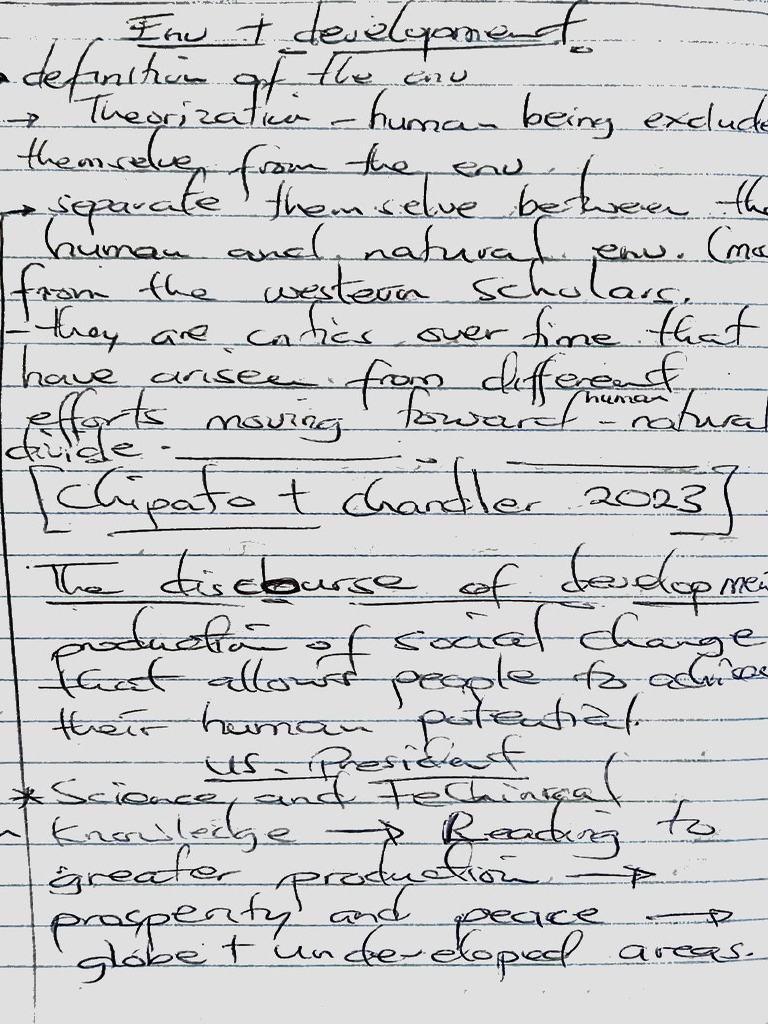 Env + development.
definition of the env
→ Theorization - human being exclude
themselve from the env.
→ separate themselve between the
human and natural env. (mo
from the western scholars.
- they are critics over time that
have arisen from different
efforts moving toward human - natural
divide.
[Chipato + Chandler 2023]
The discourse of developmen
production of social change
that allows people to
their human potential.
US. President
* Science and Techinical
Knowledge → Reading to
greater production →
prosperity and peace →
globe + undeveloped areas.